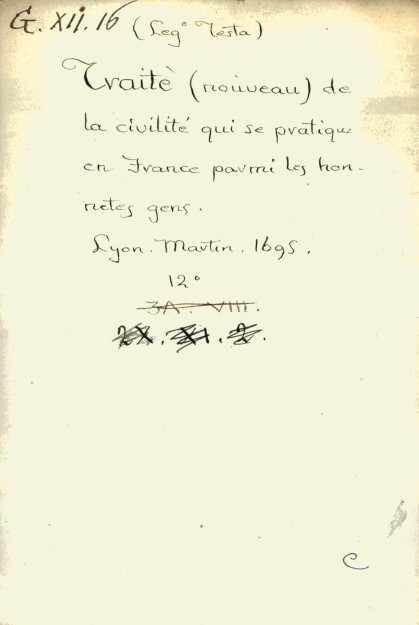 G. XII. 16 (Leg° Testa)
Traitè (nouveau) de
la civilité qui se pratique
en France parmi les hon-
netes gens.
Lyon. Martin. 1695.
12°
3A. VIII.
C